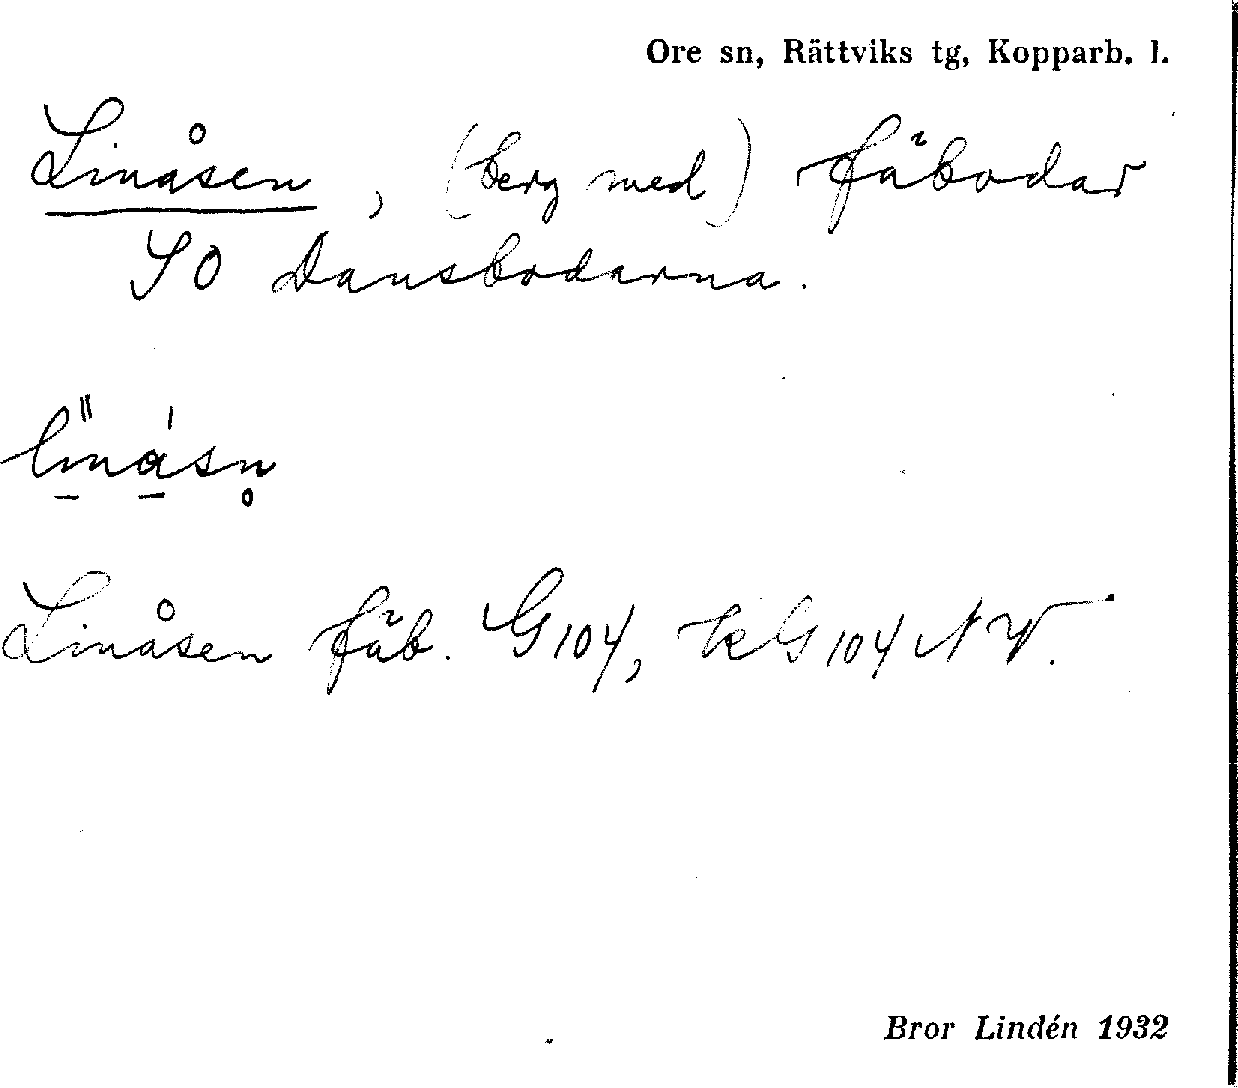 Ore sn, Rättviks tg, Kopparb. l.
Linåsen, (berg med) fäbodar
SO Dansbodarna.
linásn̥
Linåsen fäb. G104, kG104NV.
Bror Lindén 1932